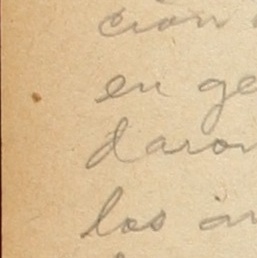 cion
en ge
daron
los an